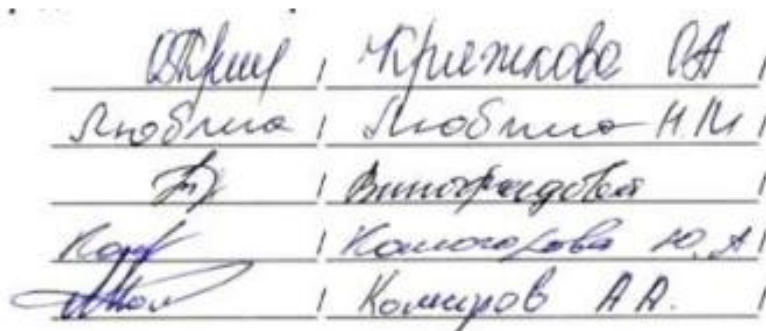 / Кряжкова ОА /
Любина / Любина Н.М /
/ Виноградова /
/ Комогорова Ю.А /
/ Комиров А А. /